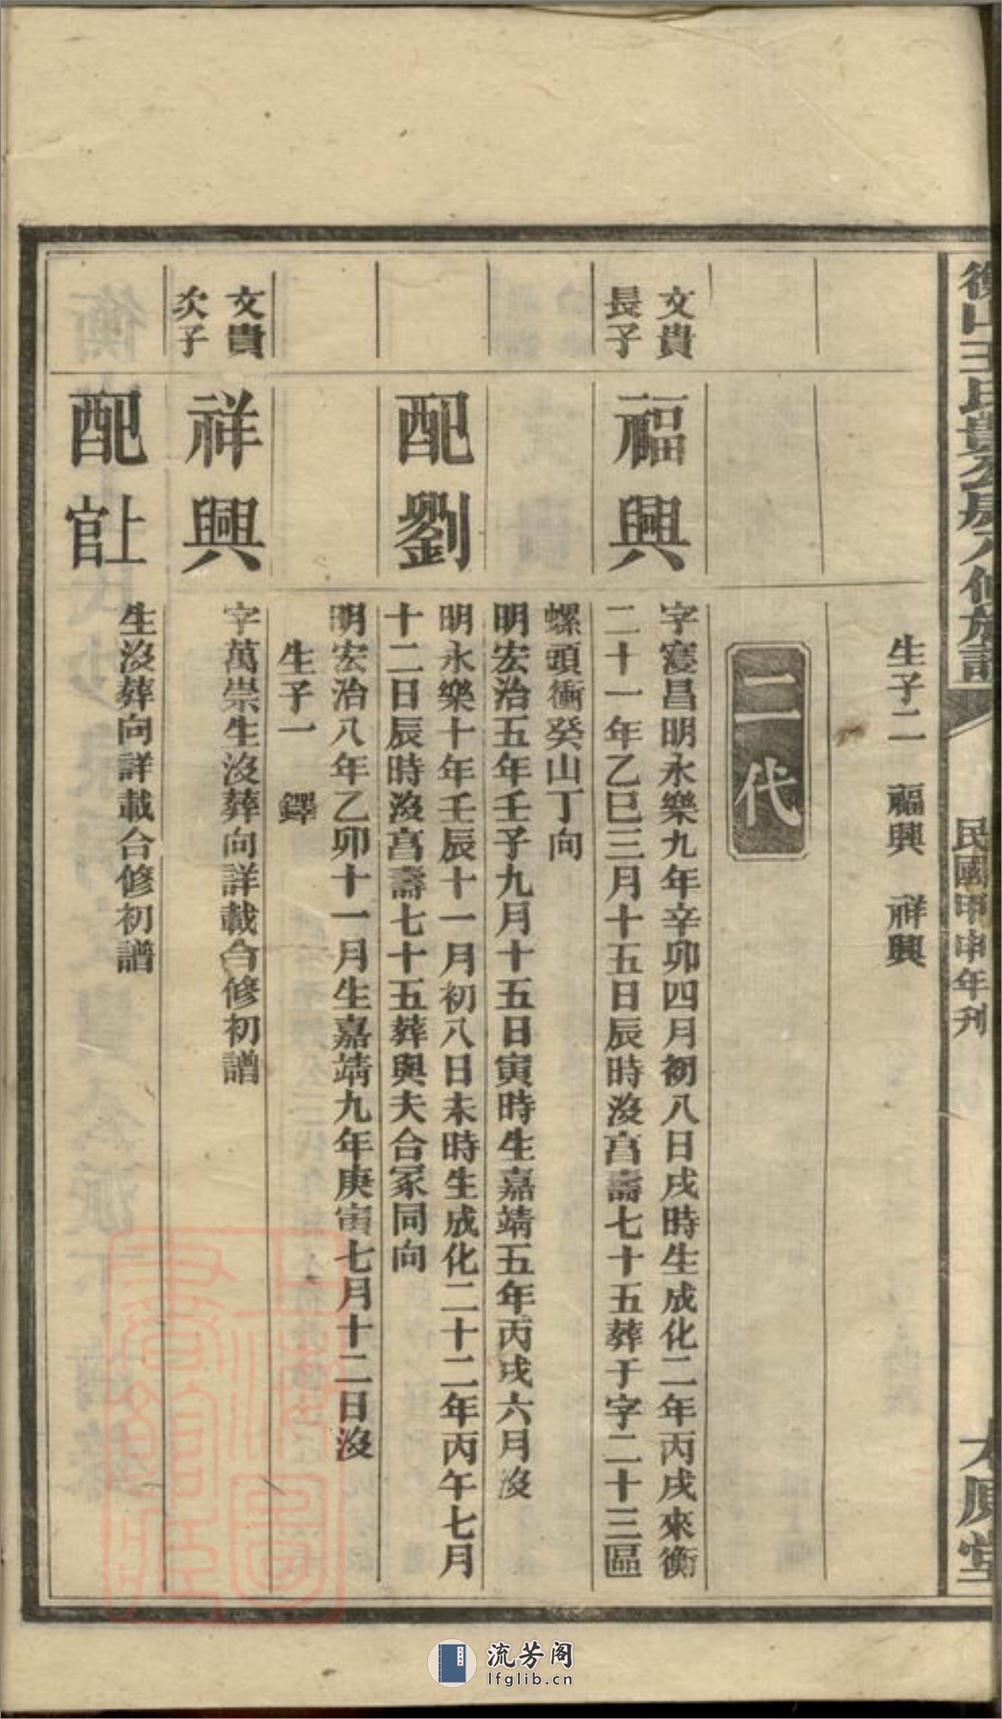 衡山王氏貴公房八修族譜
民國甲申年刊
太原堂
生子二　福興　祥興
二代
文貴
長子
福興
字寔昌明永樂九年辛卯四月初八日戌時生成化二年丙戌來衡
二十一年乙巳三月十五日辰時沒亯壽七十五葬于字二十三區
螺頭衝癸山丁向
明宏治五年壬子九月十五日寅時生嘉靖五年丙戌六月沒
配劉
明永樂十年壬辰十一月初八日未時生成化二十二年丙午七月
十二日辰時沒亯壽七十五葬與夫合冢同向
明宏治八年乙卯十一月生嘉靖九年庚寅七月十二日沒
生子一　鐸
文貴
次子
祥興
字萬崇生沒葬向詳載合修初譜
配上官
生沒葬向詳載合修初譜
流芳阁
lfglib.cn